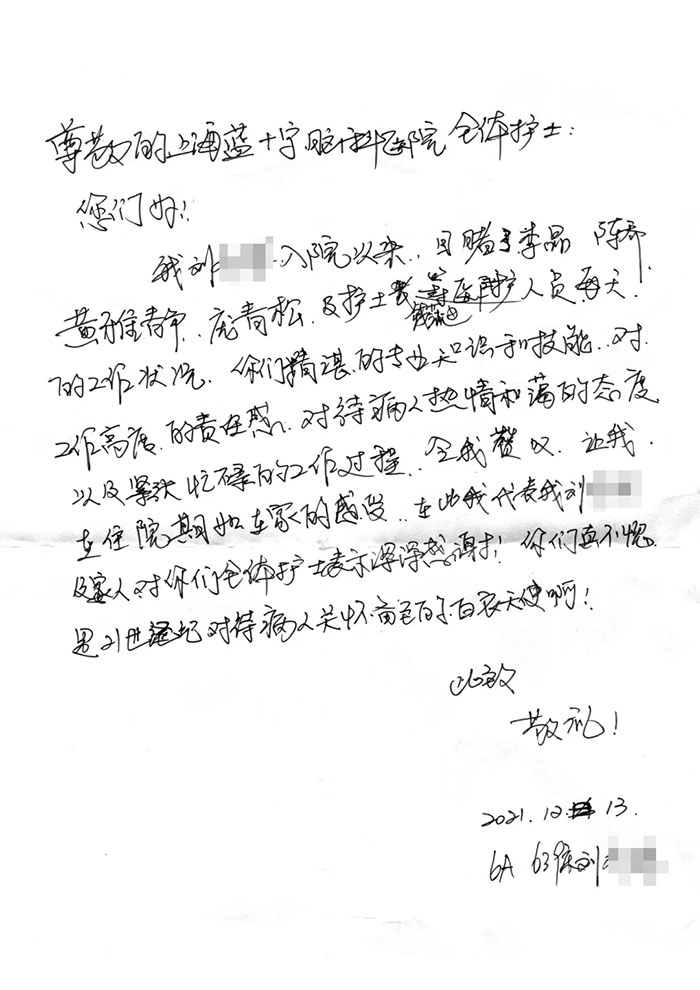 尊敬的上海蓝十字脑科医院全体护士:
您们好!
我刘 入院以来.目睹了李晶 陈乔
黄雅静、庞青松.及护士 等医护人员每天
的工作状况.你们精湛的专业知识和技能.对
工作高度的责任感.对待病人热情和蔼的态度
以及紧张忙碌的工作过程.令我赞叹.让我
在住院期如在家的感受.在此我代表我刘
及家人对你们全体护士表示深深感谢!你们真不愧
是21世纪对待病人关怀 的白衣天使啊!
此致
敬礼!
2021.12.13.
6A 63床刘